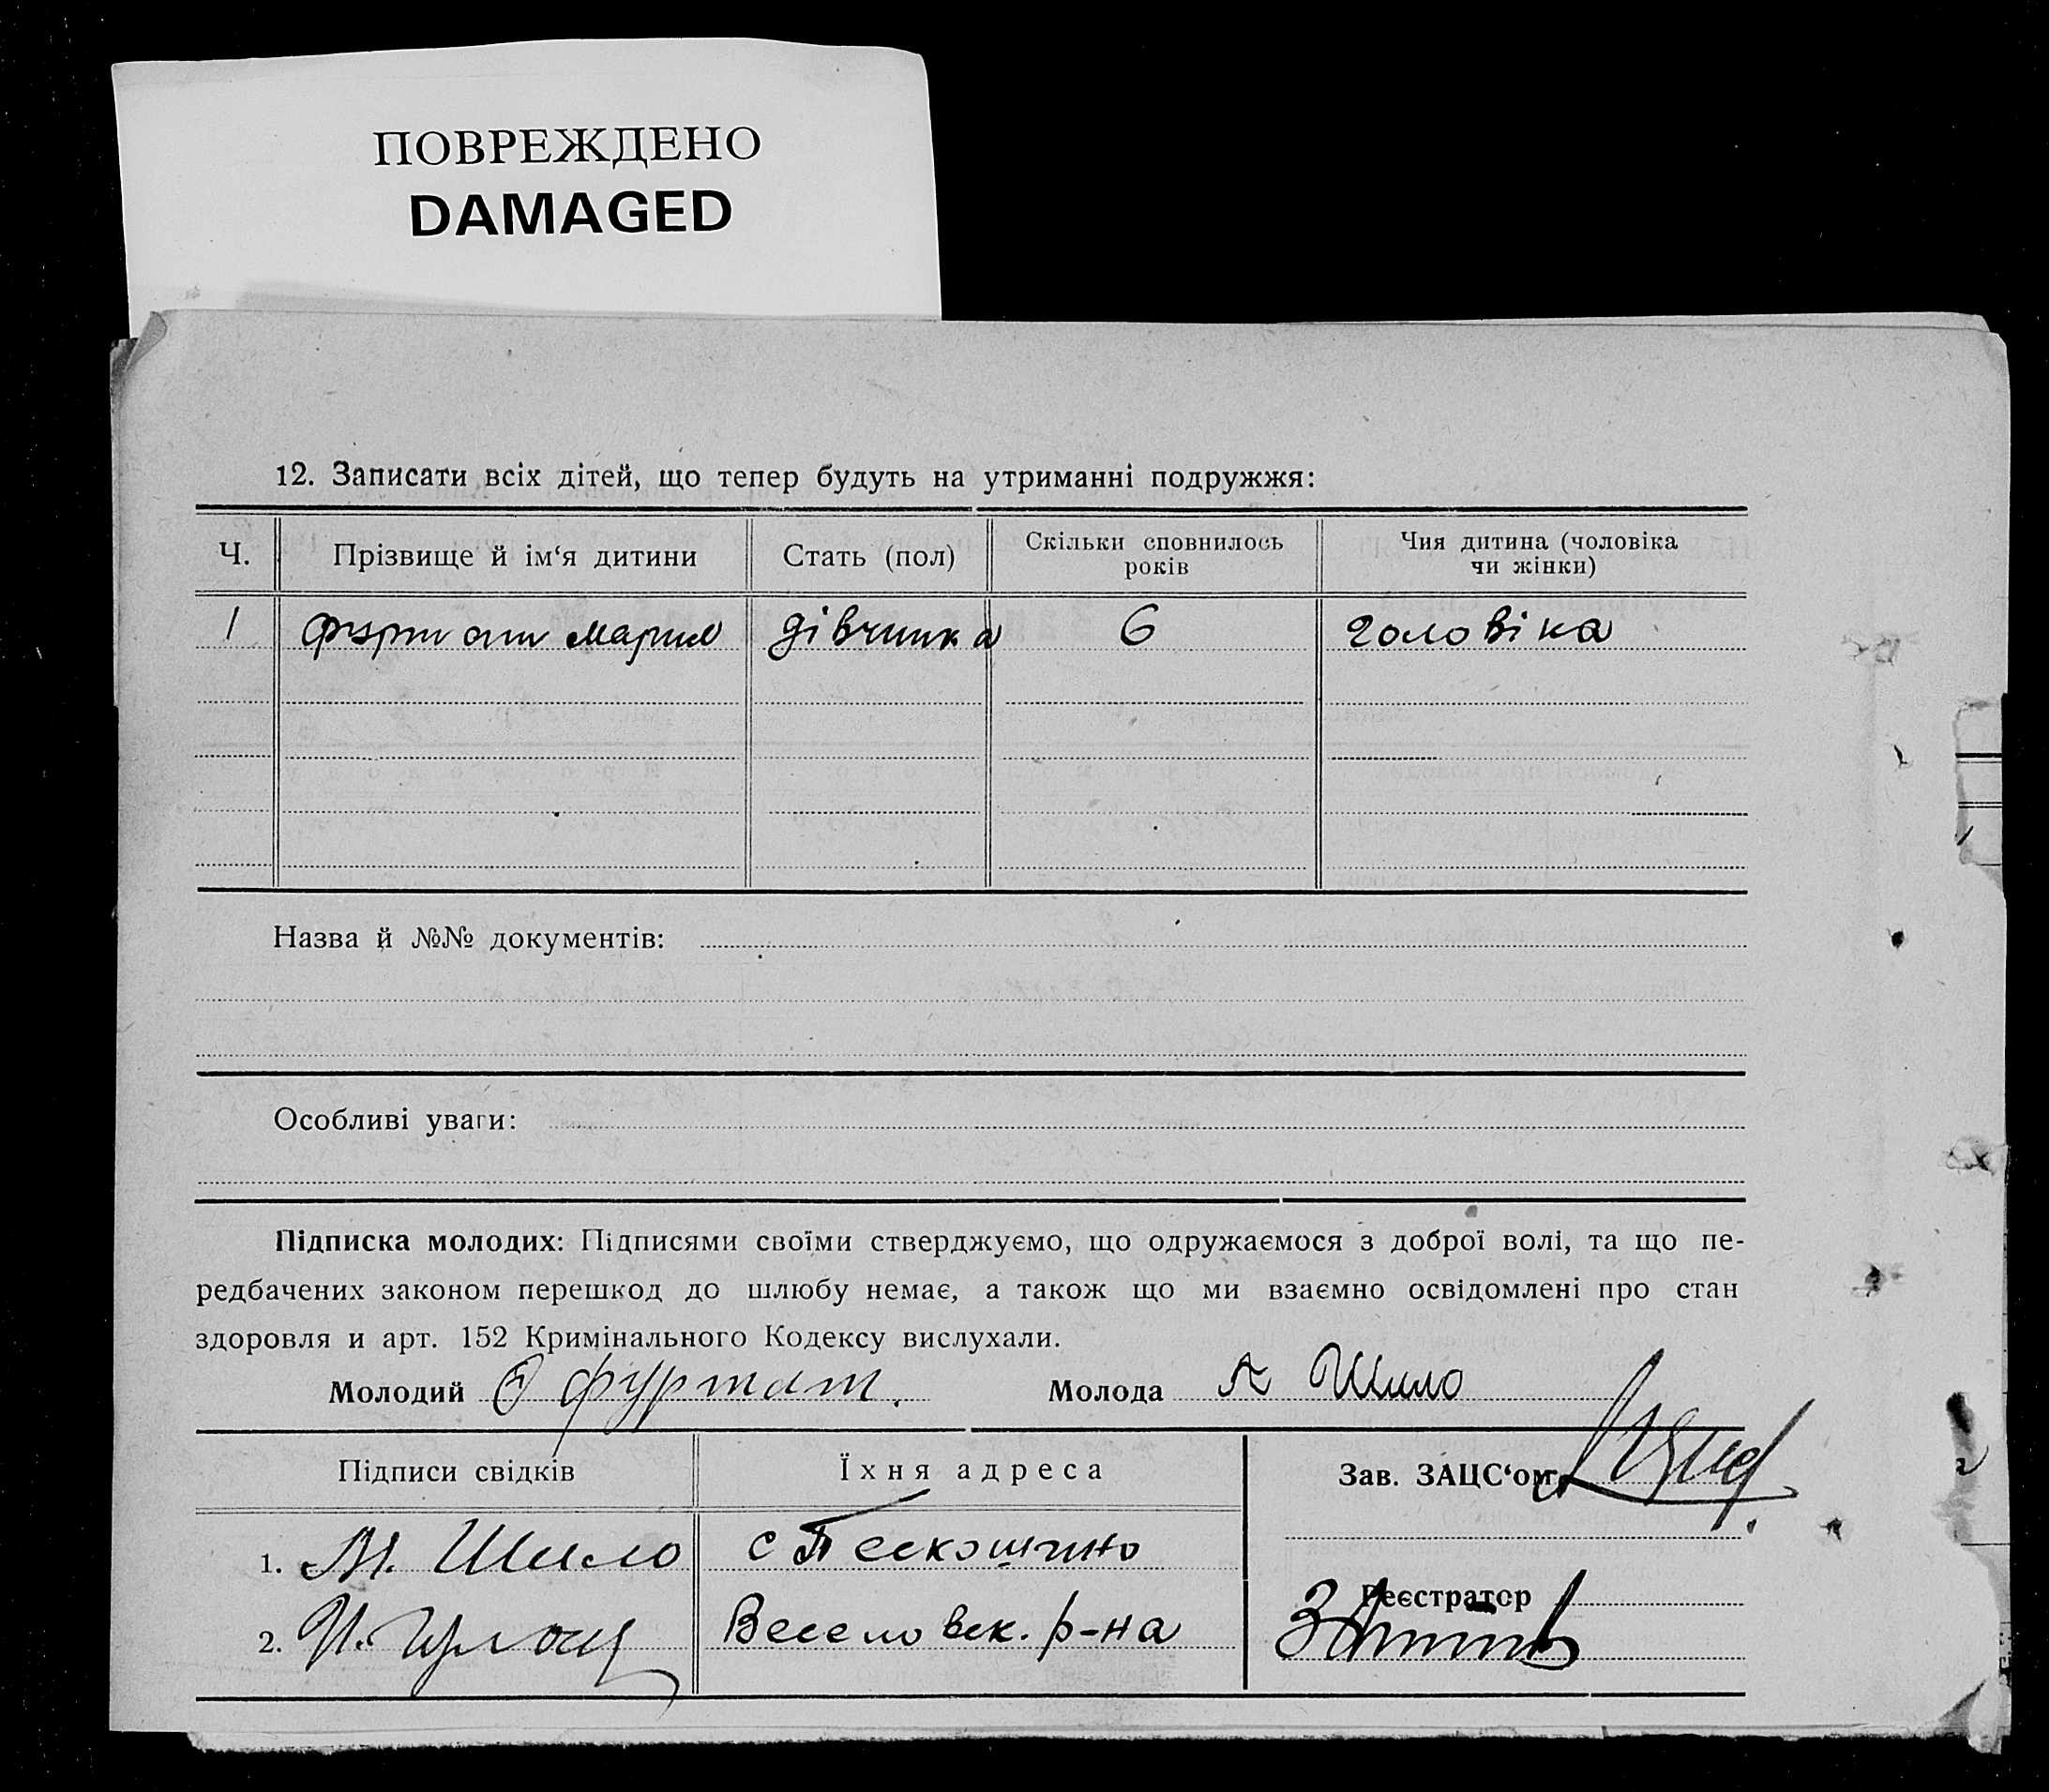 ПОВРЕЖДЕНО
DAMAGED
12. Записати всіх дітей, що тепер будуть на утриманні подружжя:
Ч. Прізвище й ім‘я дитини Стать (пол) Скільки сповнилось років Чия дитина (чоловіка чи жінки)
1 Фуртат Мария дівчинка 6 чоловіка
Назва й №№ документів:
Особливі уваги:
Підписка молодих: Підписями своїми стверджуємо, що одружаємося з доброї волі, та що пе-
редбачених законом перешкод до шлюбу немає, а також що ми взаємно освідомлені про стан
здоровля и арт. 152 Кримінального Кодексу вислухали.
Молодий Фуртат. Молода Шило
Підписи свідків Їхня адреса Зав. ЗАЦС‘ом
1. М. Шило с
Реєстратор
2. р-на